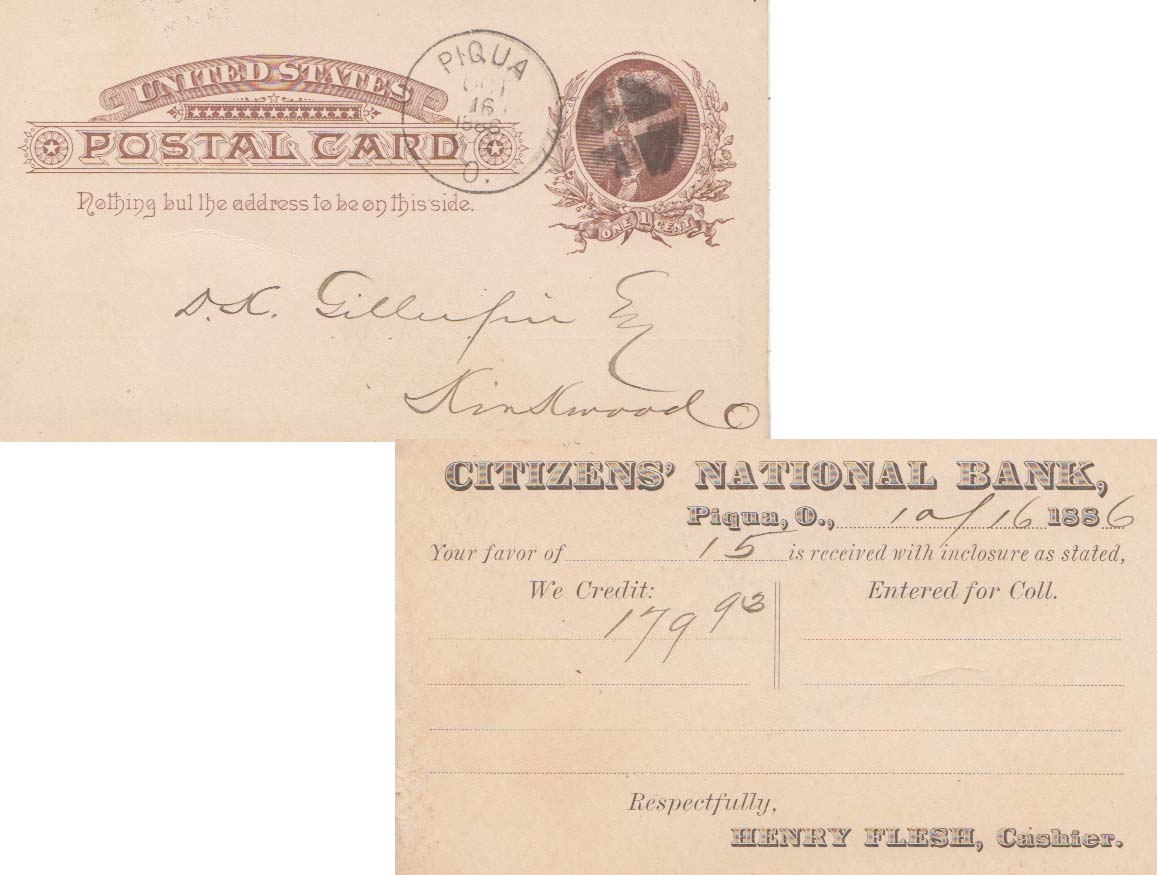 UNITED STATES
POSTAL CARD
Nothing but the address to be on this side.
PIQUA
OCT
16
1886
O.
ONE 1 CENT
D. K. Gillespie Esq
Kirkwood O
CITIZENS' NATIONAL BANK,
Piqua, O., 10/16 1886
Your favor of 15 is received with inclosure as stated,
We Credit: Entered for Coll.
179 93
Respectfully,
HENRY FLESH, Cashier.